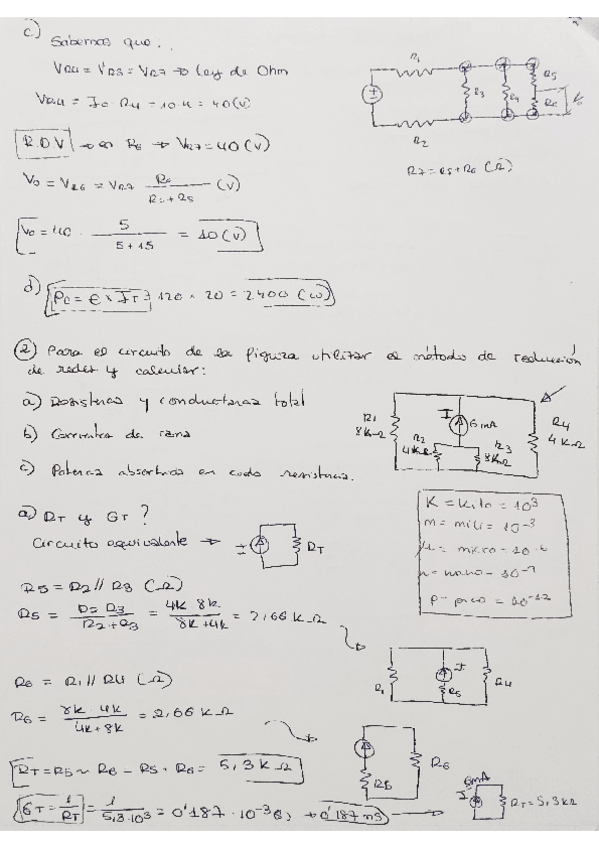 c)
Sabemos que..
VR4 = VR3 = VR7 → Ley de Ohm
VR4 = I0 · R4 = 10 · 4 = 40 (V)
R.D.V → en R6 → VR7 = 40 (V)
V0 = VR6 = VR7 R6 / R6 + R5 (V)
V0 = 40 · 5 / 5 + 15 = 10 (V)
R1
R3
R4
R5
R6
V0
R2
R7 = R5 + R6 (Ω)
d) Pe = E × IT = 120 × 20 = 2400 (W)
2) Para el circuito de la figura utilizar el método de reducción
de redes y calcular:
a) Resistencia y conductancia total
b) Corrientes de rama
c) Potencia absorbida en cada resistencia.
R1
8kΩ
I
6 mA
R2
4kΩ
R3
8kΩ
R4
4 kΩ
a) RT y GT ?
Circuito equivalente →
I
RT
K = Kilo = 10³
m = mili = 10⁻³
μ = micro = 10⁻⁶
n = nano = 10⁻⁹
p = pico = 10⁻¹²
R5 = R2 // R3 (Ω)
R5 = R2 · R3 / R2 + R3 = 4K · 8K / 8K + 4K = 2,66 K Ω
R1
I
R5
R4
R6 = R1 // R4 (Ω)
R6 = 8k · 4k / 4k + 8k = 2,66 K Ω
R5
R6
RT = R5 ~ R6 = R5 + R6 = 5,3 K Ω
GT = 1 / RT = 1 / 5,3·10³ = 0'187 · 10⁻³ → 0'187 mS
6mA
I
RT = 5,3 kΩ